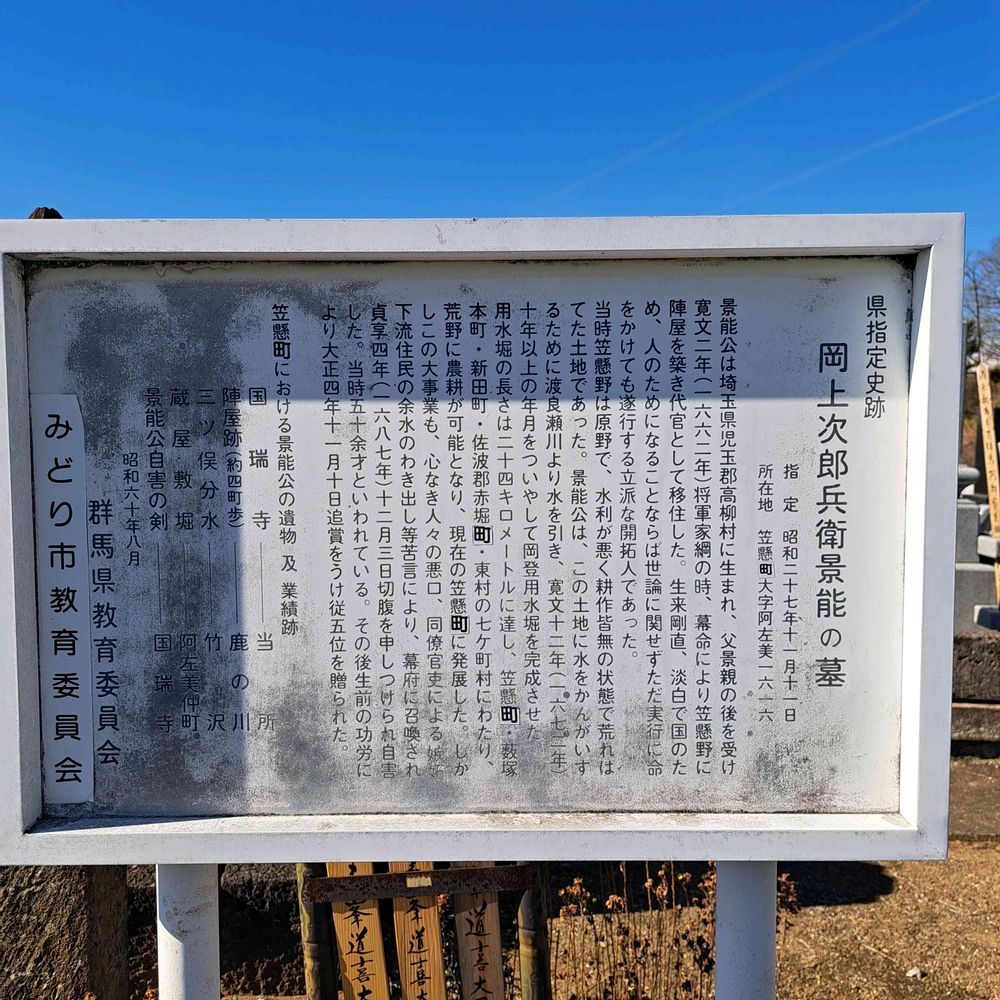 県指定史跡
岡上次郎兵衛景能の墓
指定 昭和二十七年十一月十一日
所在地 笠懸町大字阿左美一六一六
景能公は埼玉県児玉郡高柳村に生まれ、父景親の後を受け
寛文二年(一六六二年)将軍家綱の時、幕命により笠懸野に
陣屋を築き代官として移住した。生来剛直、淡白で国のた
め、人のためになることならば世論に関せずただ実行に命
をかけても遂行する立派な開拓人であった。
当時笠懸野は原野で、水利が悪く耕作皆無の状態で荒れは
てた土地であった。景能公は、この土地に水をかんがいす
るために渡良瀬川より水を引き、寛文十二年(一六七二年)
十年以上の年月をついやして岡登用水堀を完成させた
用水堀の長さは二十四キロメートルに達し、笠懸町・薮塚
本町・新田町・佐波郡赤堀町・東村の七ケ町村にわたり、
荒野に農耕が可能となり、現在の笠懸町に発展した。しか
しこの大事業も、心なき人々の悪口、同僚官吏による嫉妬
下流住民の余水のわき出し等苦言により、幕府に召喚され
貞享四年(一六八七年)十二月三日切腹を申しつけられ自害
した。当時五十余才といわれている。その後生前の功労に
より大正四年十一月十日追賞をうけ従五位を贈られた。
笠懸町における景能公の遺物及業績跡
国瑞寺 ―― 当所
陣屋跡(約四町歩) ―― 鹿の川
三ツ俣分水 ―― 竹沢
蔵屋敷堀 ―― 阿左美仲町
景能公自害の剣 ―― 国瑞寺
昭和六十年八月
群馬県教育委員会
みどり市教育委員会
峯道喜大
道喜
道士大